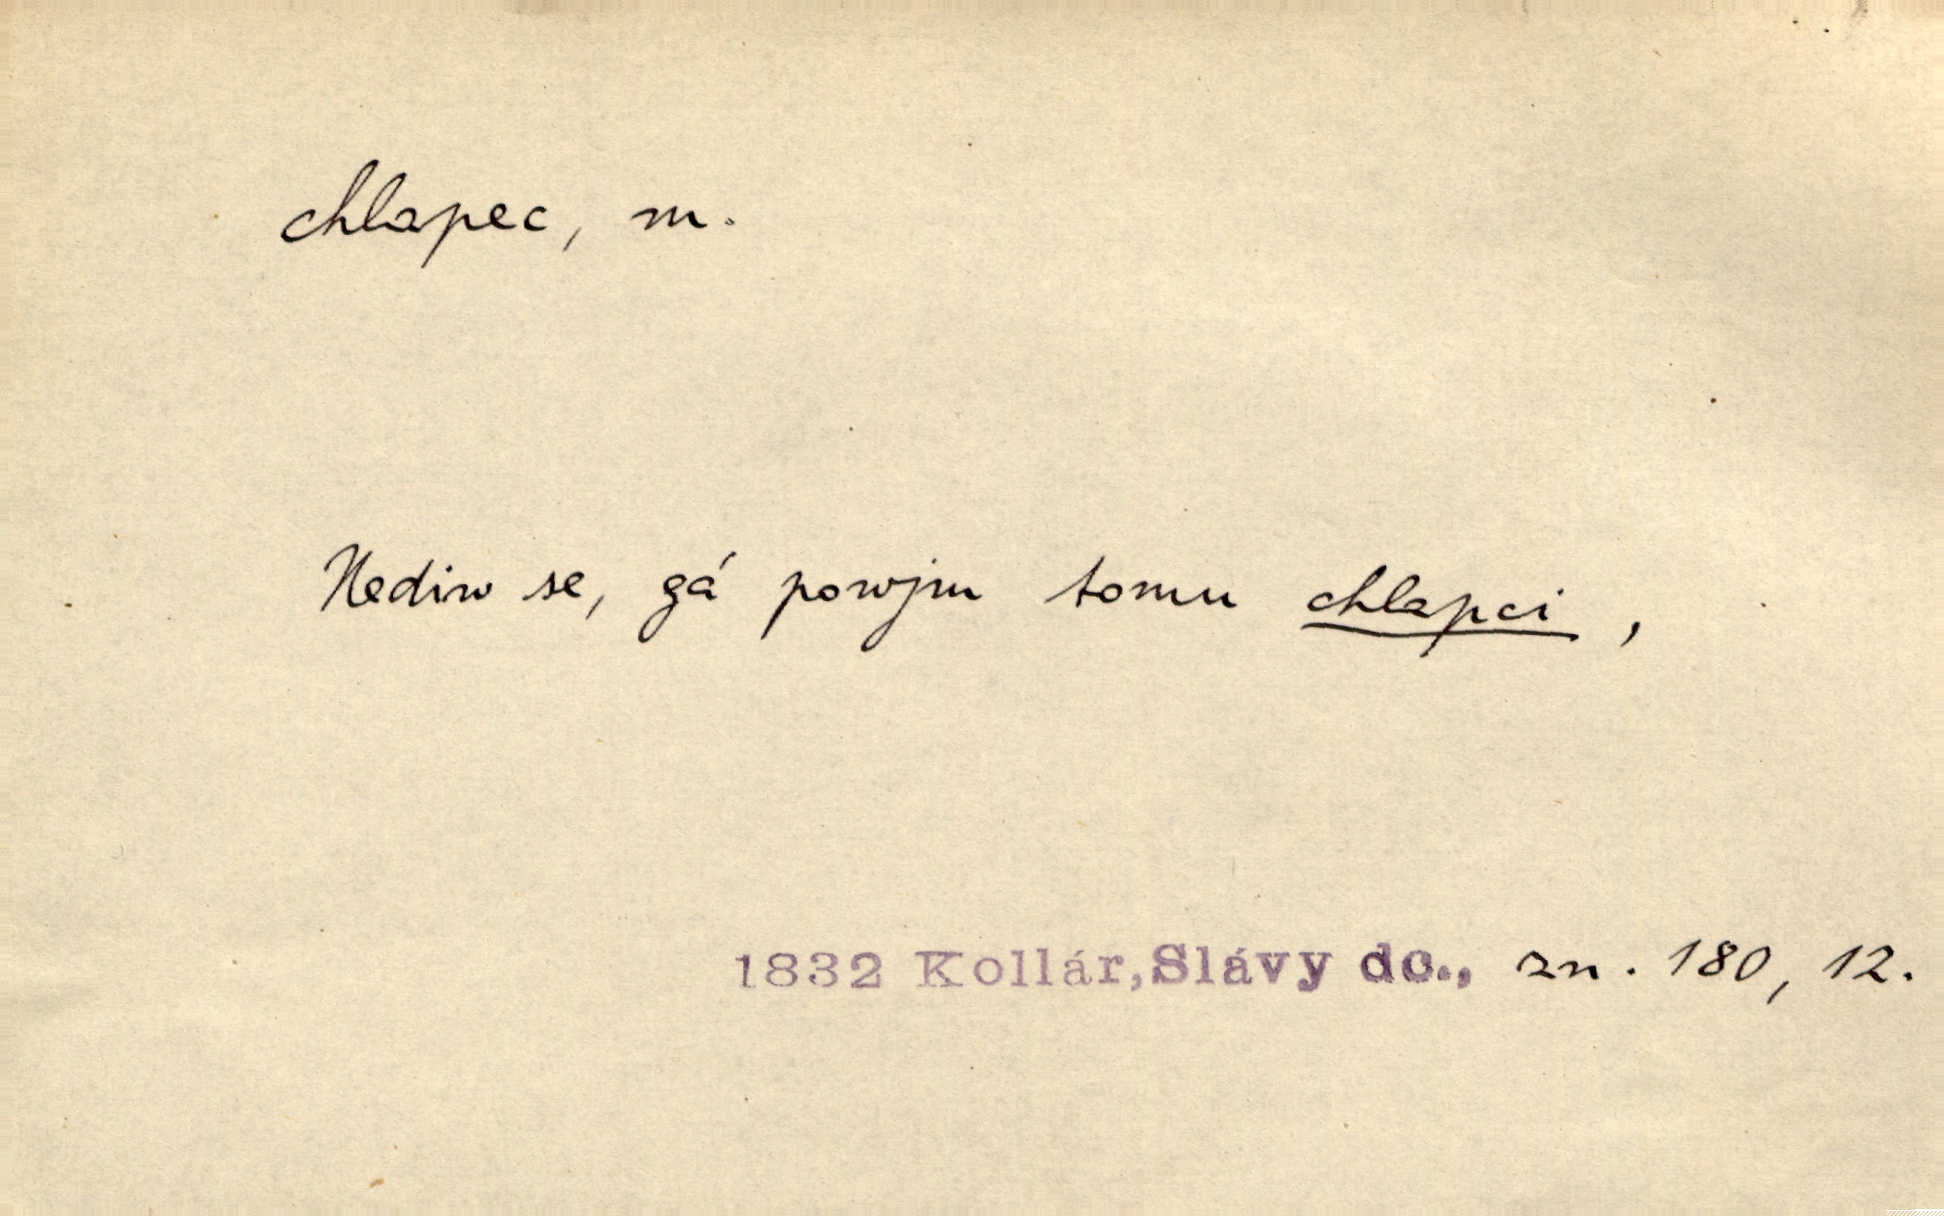 chlapec, m.
Nediw se, gá powjm tomu chlapci,
1832 Kollár, Slávy dc., zn. 180, 12.